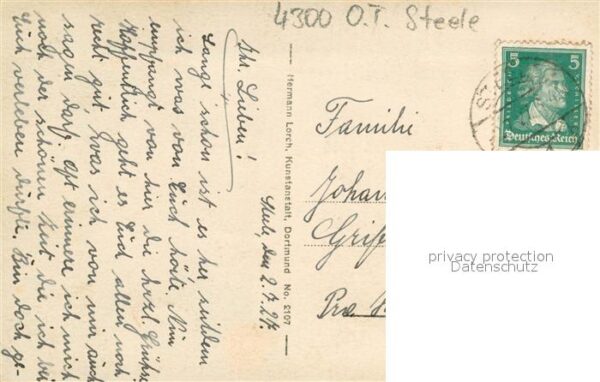 4300 O.T. Steele
5 5
Deutsches Reich
Steele den 2.7.27.
Ihr Lieben!
Lange schon ist es her seitdem
ich was von Euch hörte. Nun
empfangt von hier die herzl. Grüße
Hoffentlich geht es Euch allen noch
recht gut, was ich von mir auch
sagen darf. Oft erinnere ich mich
noch der schönen Zeit die ich bei
Euch verleben durfte.
Hermann Lorch, Kunstanstalt, Dortmund No. 2107
Familie
Johan
privacy protection
Datenschutz